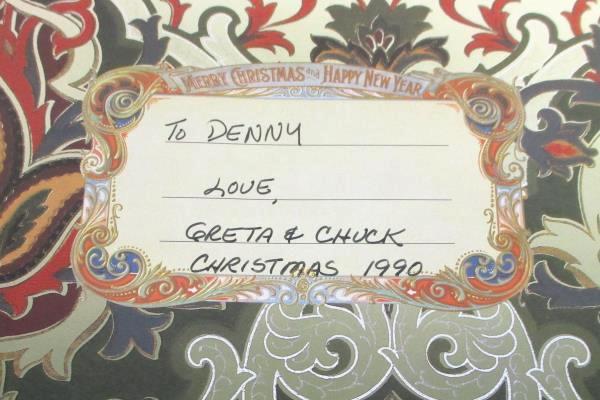 MERRY CHRISTMAS and HAPPY NEW YEAR
To DENNY
LOVE,
GRETA & CHUCK
CHRISTMAS 1990